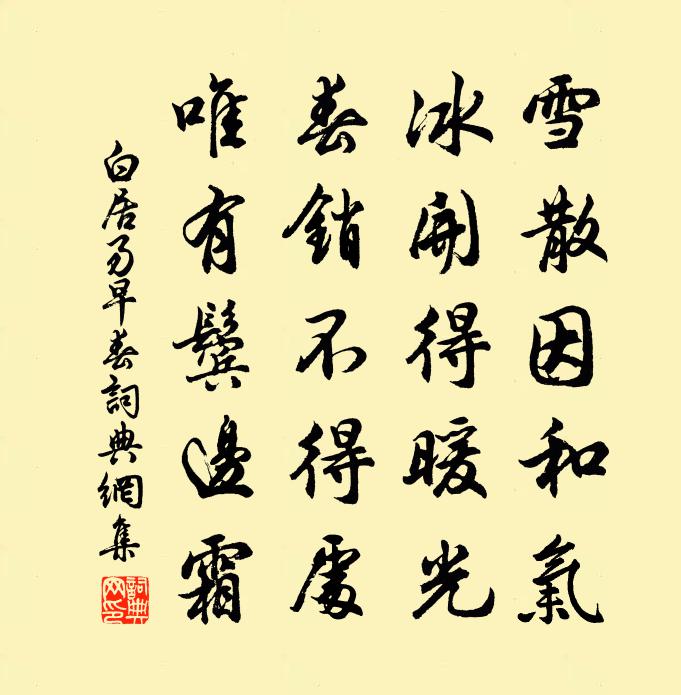 雪散因和氣
冰開得暖光
春銷不得處
唯有鬢邊霜
白居易早春詞典網集
詞典網印